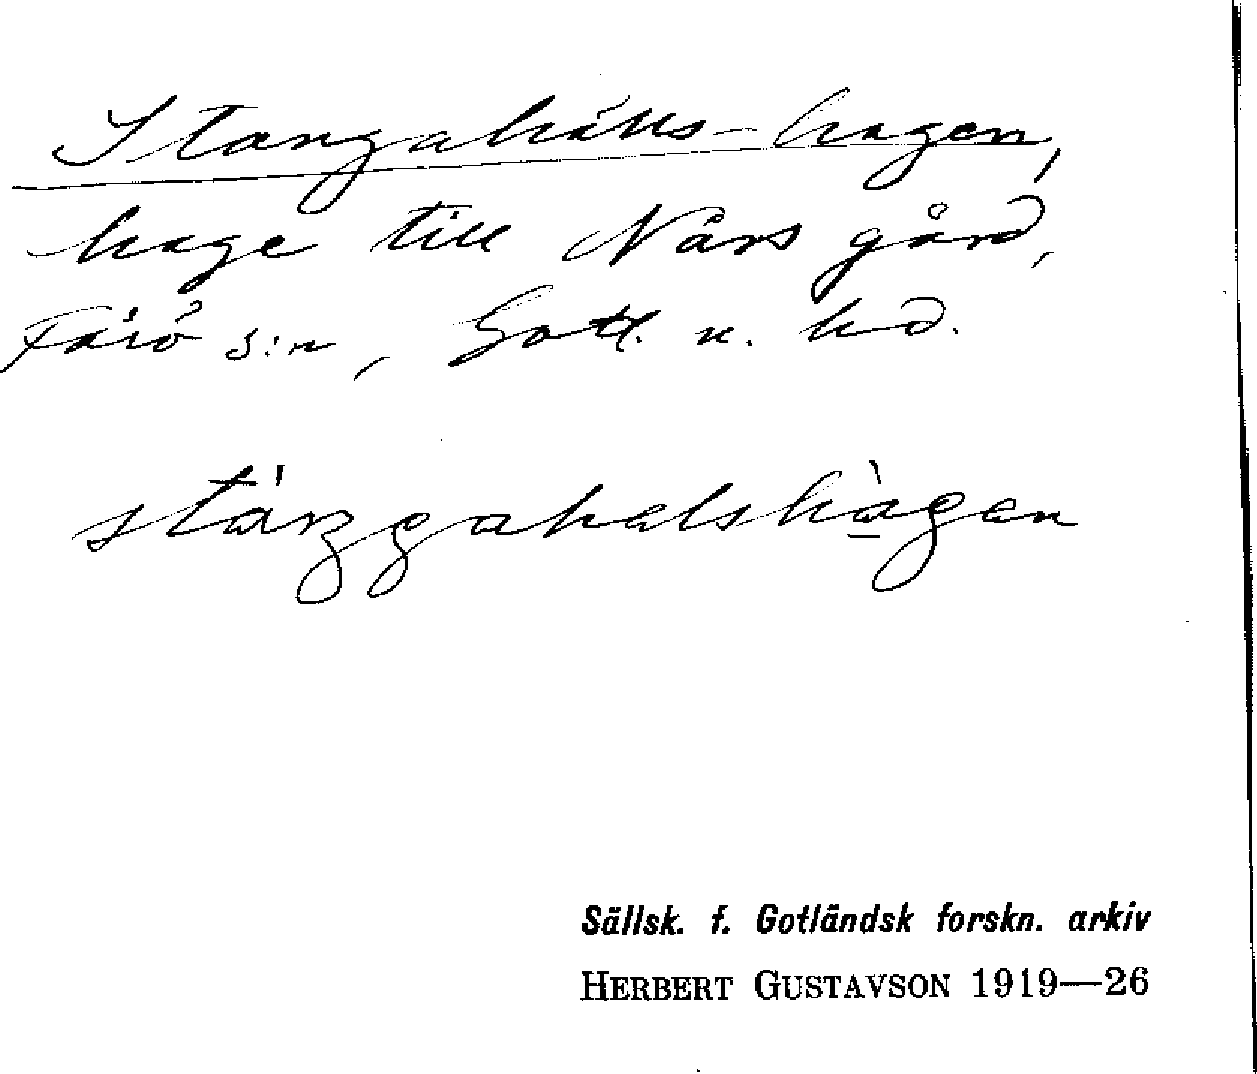 Stangahälls-hagen,
hage till Nårs gård,
Fårö s:n, Gotl. n. hd.
stáŋgahalshàgen
Sällsk. f. Gotländsk forskn. arkiv
HERBERT GUSTAVSON 1919—26